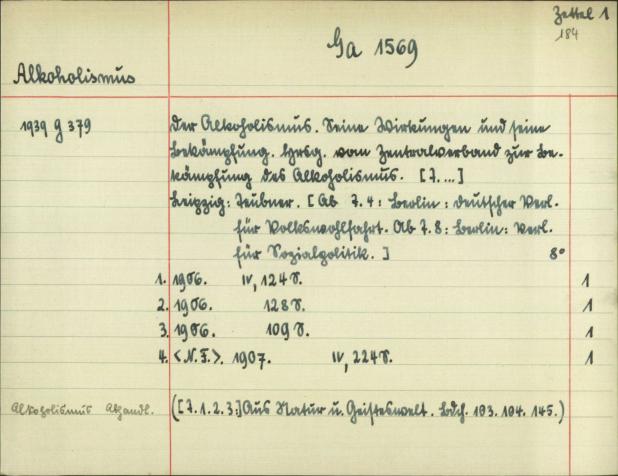 Zettel 1
184
Ga 1569
Alkoholismus
1939 g 379
Der Alkoholismus. Seine Wirkungen und seine
Bekämpfung. Hrsg. vom Zentralverband zur Be-
kämpfung des Alkoholismus. [T. ...]
Leipzig: Teubner. [Ab T. 4: Berlin: Deutscher Verl.
für Volkswohlfahrt. Ab T. 8: Berlin: Verl.
für Sozialpolitik.] 8°
1. 1906. IV, 124 S. 1
2. 1906. 128 S. 1
3. 1906. 109 S. 1
4. <N. F.>. 1907. IV, 224 S. 1
Alkoholismus Abhandl.
([T. 1. 2. 3:] Aus Natur u. Geisteswelt. Bdch. 103. 104. 145.)